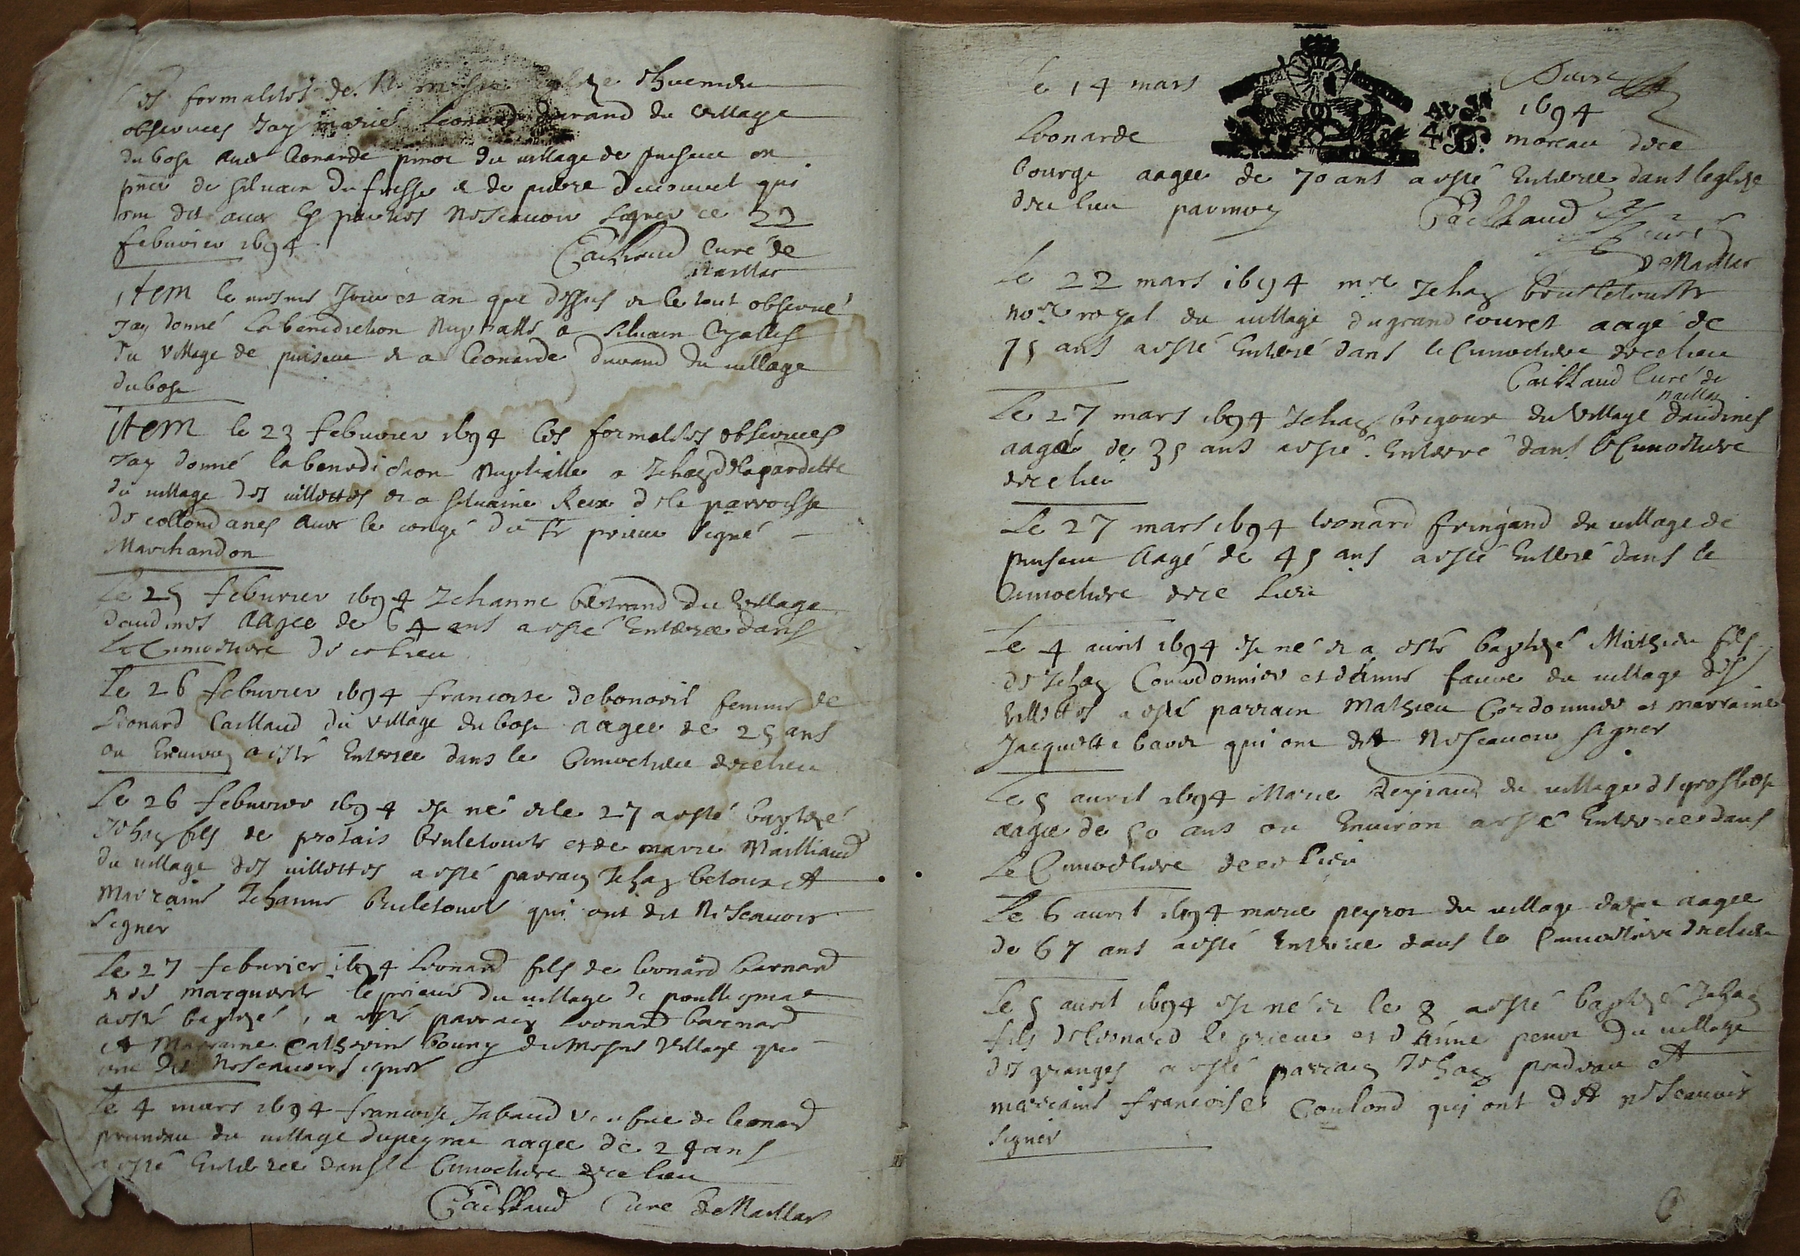 les formalités de
observees Jay mariés Leonard durand du village
du bosc avec Leonarde du village de puiseux en
de silvain de et de pierre qui
ont dit avec les parties ne scavoir signer ce 22
februrier 1694
Caillaud Curé de
Naillac
item le mesme Jour et an que dessus et le tout observé
Jay donné la benediction nuptialle a silvain
du village de puiseux et a Leonarde durand du village
du bosc
item le 23 februrier 1694 les formalités observees
Jay donné la benediction nuptialle a Jehan delagardette
du village des villettes et a silvaine Reux de la parroisse
de collondanes avec le congé du Sr prieur signé
Marchandon
Le 25 februrier 1694 Jehanne bertrand du village
daudines aagee de 64 ans a esté enterree dans
le Cimetiere de ce lieu
Le 26 februrier 1694 francoise debonoeil femme de
Leonard Caillaud du village du bosc aagee de 25 ans
ou environ a esté enterree dans le Cimetiere de ce lieu
Le 26 februrier 1694 est né et le 27 a esté baptizé
Jehan fils de protais bruletourte et de marie Mailliaud
du village des villettes a esté parrain Jehan betoux et
marraine Jehanne bruletourte qui ont dit ne scavoir
signer
Le 27 februrier 1694 Leonard fils de Leonard barnard
et de marguerite leprieur du village de
a esté baptizé, a esté parrain Leonard barnard
et Marraine Catherine bouny du mesme village qui
ont dit ne scavoir signer
Le 4 mars 1694 francoise Jabaud veufue de Leonard
pruneau du village dupeyrat aagee de 24 ans
a esté enterree dans le Cimetiere de ce lieu
Caillaud Curé de Naillac
Le 14 mars 1694
Leonarde moreau de ce
bourg aagee de 70 ans a esté enterree dans leglise
de ce lieu par moy Caillaud curé
de Naillac
Le 22 mars 1694 mre Jehan bruletourte
nore royal du village du grand couret aagé de
75 ans a esté enterré dans le Cimetiere de ce lieu
Caillaud Curé de
Naillac
Le 27 mars 1694 Jehan brigoux du village daudines
aagé de 35 ans a esté enterré dans le Cimetiere
de ce lieu
Le 27 mars 1694 Leonard fringand du village de
puiseux aagé de 45 ans a esté enterré dans le
Cimetiere de ce lieu
Le 4 auril 1694 est né et a esté baptizé Mathieu fils
de Jehan Courdonnier et dAnne faure du village des
villettes a esté parrain Mathieu Cordonnier et marraine
Jacquette baude qui ont dit ne scavoir signer
Le 5 auril 1694 Marie du village de grosbost
aagee de 50 ans ou environ a esté enterree dans
le Cimetiere de ce lieu
Le 6 auril 1694 marie peyrot du village aagee
de 67 ans a esté enterree dans le Cimetiere de ce lieu
Le 5 auril 1694 est né et le 8 a esté baptizé Jehan
fils de Leonard le prieur et dAnne penot du village
des granges a esté parrain Jehan et
marraine francoise Coulond qui ont dit ne scavoir
signer